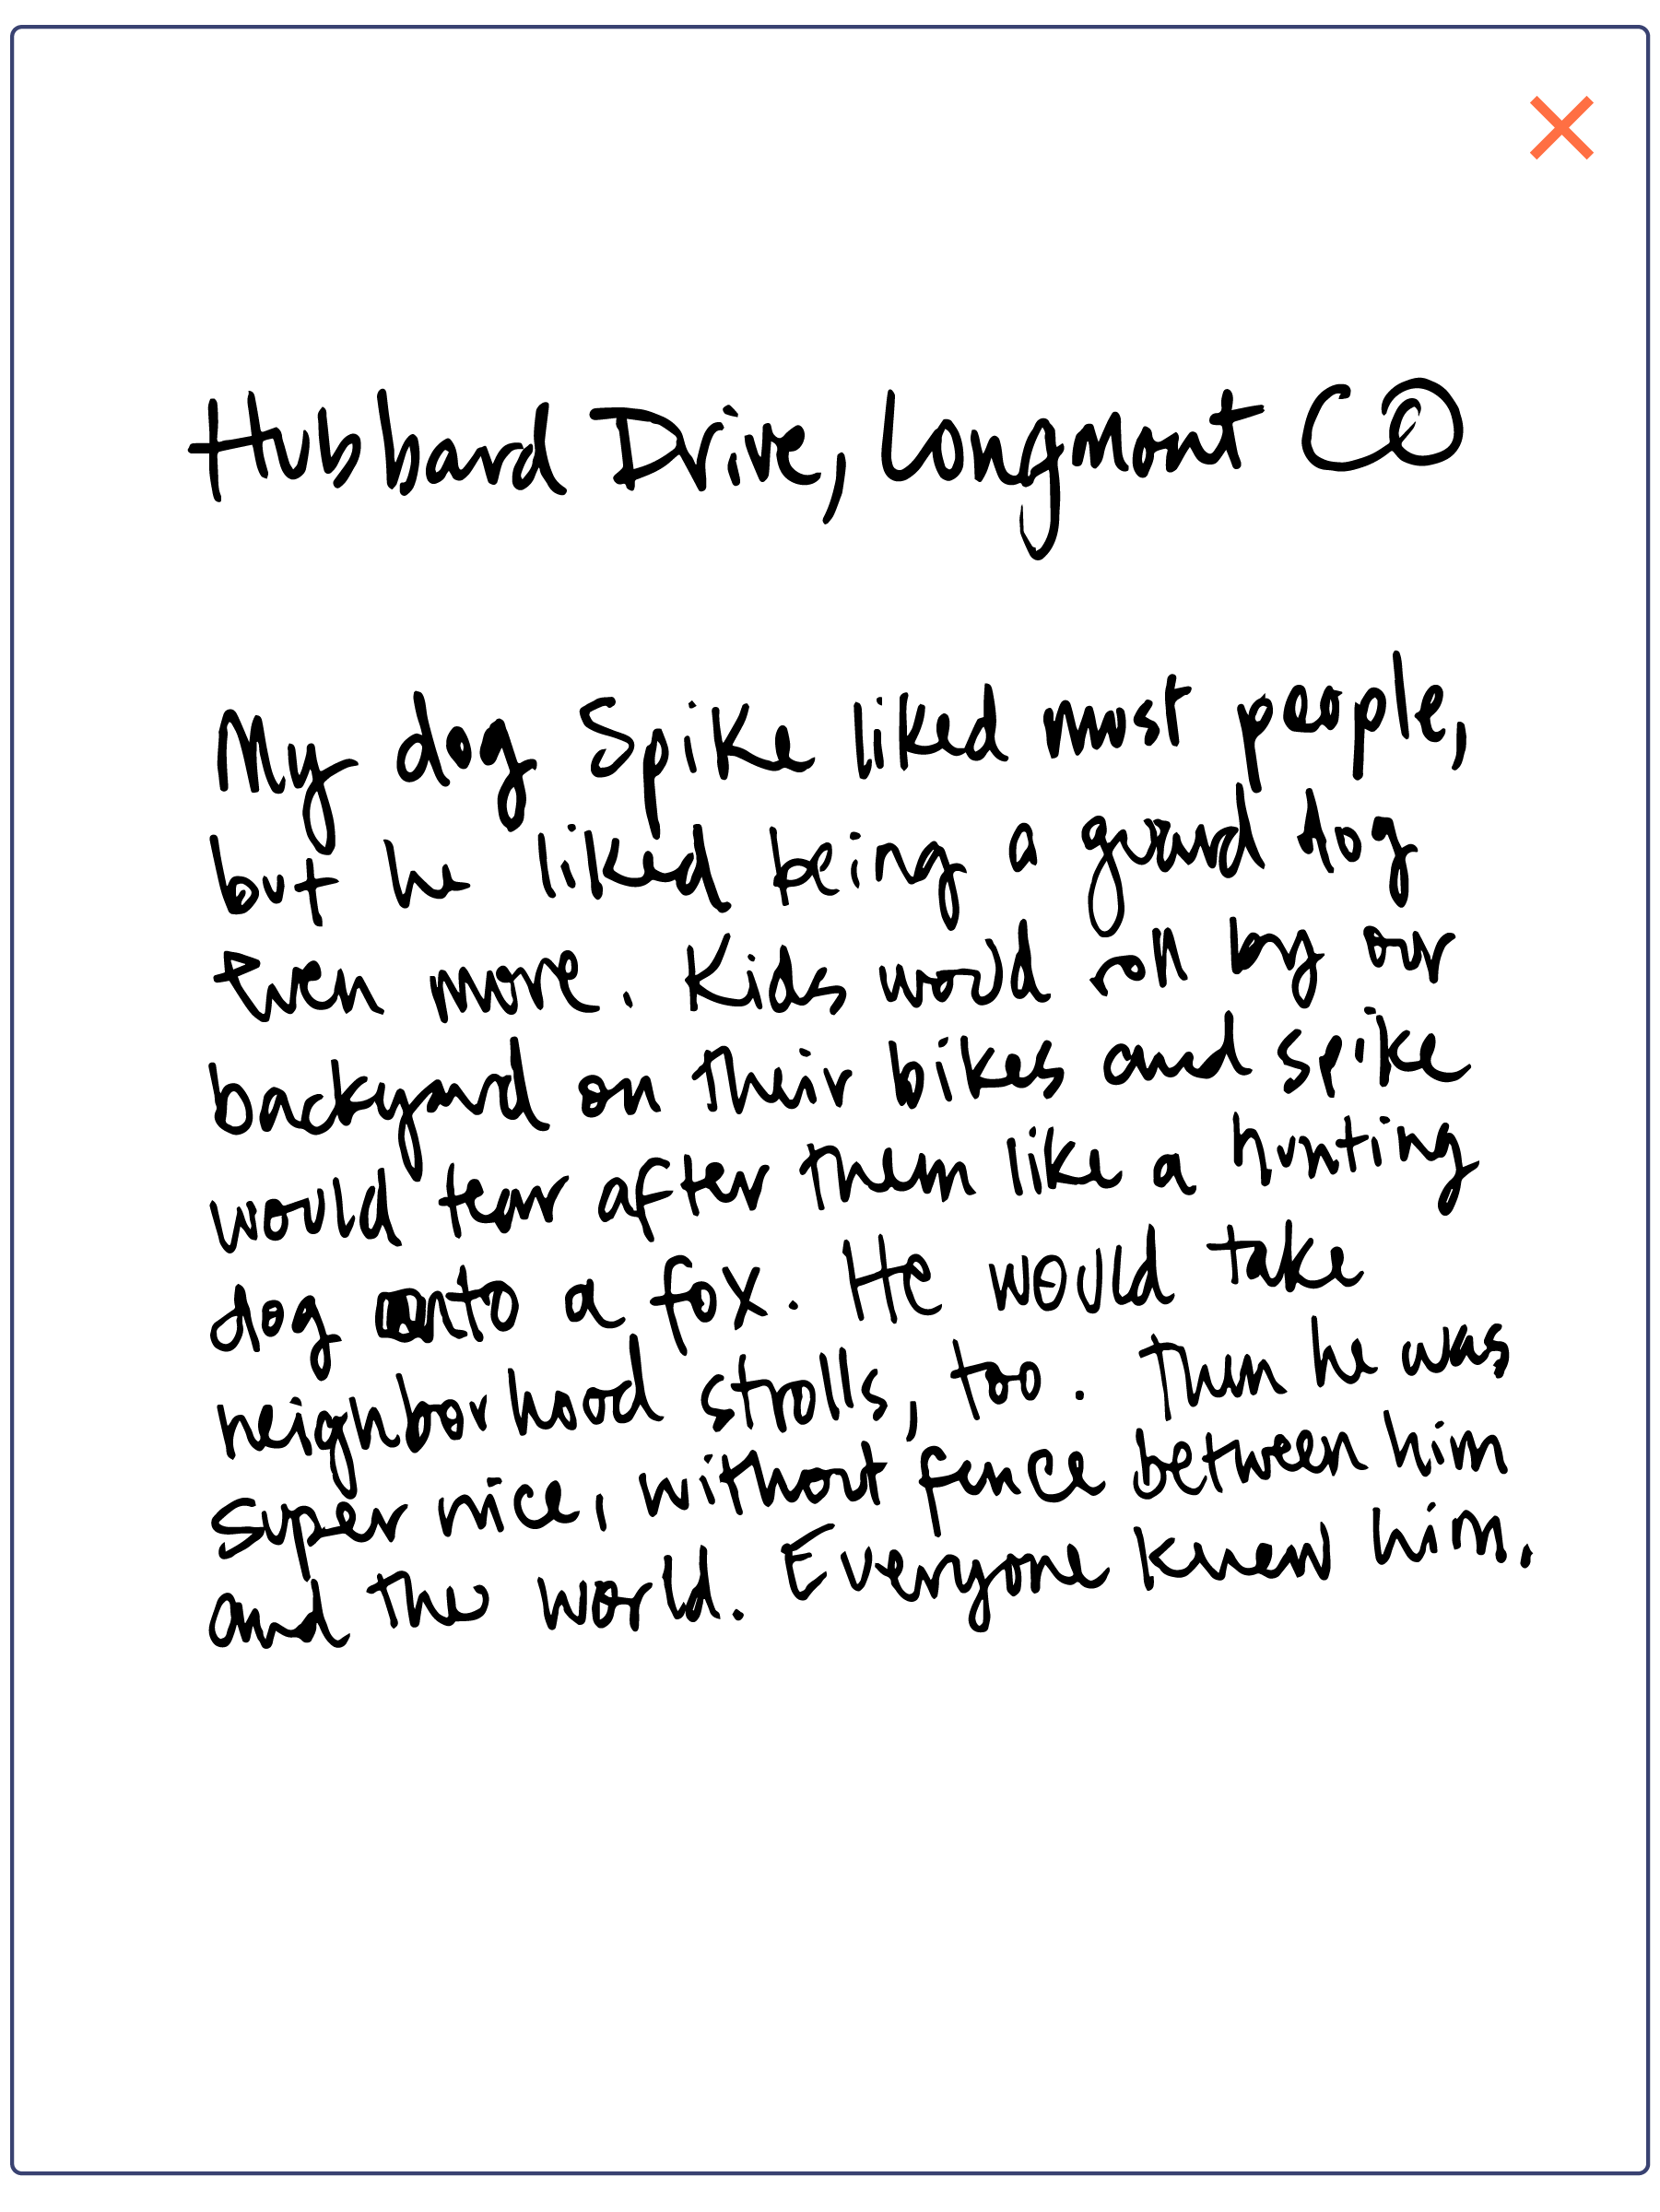 Hubband Drive, Longmont CO
My dog Spike liked most people,
but he liked being a guard dog
even more. Kids would roll by our
backyard on their bikes and spike
would tear after them like a hunting
dog onto a fox. He would take
neighborhood strolls, too. Then he was
super nice, without fence between him
and the world. Everyone knew him.